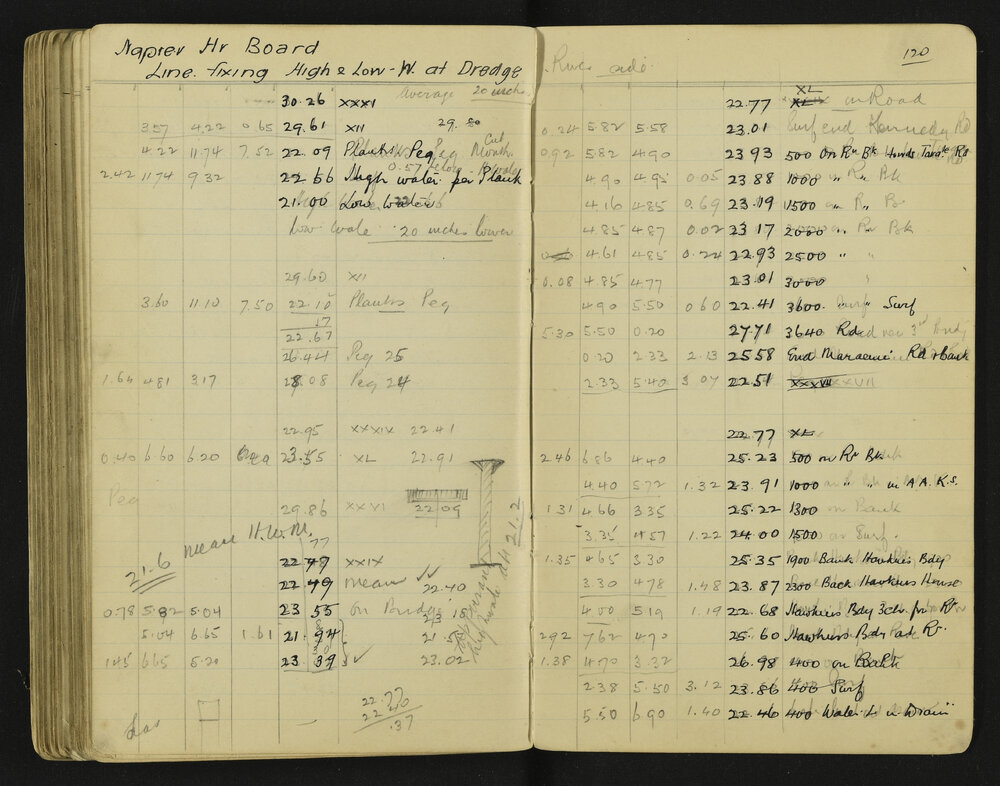 Napier Hr Board
Line fixing High & Low-W. at Dredge
Average 20 inches
30.26 XXXI
3.57 4.22 0.65 29.61 XII 29.80
4.22 11.74 7.52 22.09 Plants Peg
2.42 11.74 9.32 22.56 High water per Plank
21.00 Low water
Low Wate 20 inches lower
29.60 XII
3.60 11.10 7.50 22.10 Plants Peg
17
22.67
26.44 Peg 25
1.64 4.81 3.17 28.08 Peg 24
22.95 XXXIX 22.41
0.40 6.60 6.20 23.55 XL 22.91
Peg
29.86 XXVI 22.09
mean H.W.M.
21.6
77
22.47 XXIX
22.49 mean 22.40
0.78 5.82 5.04 23.55 on Bridge 23.15
5.04 6.65 1.61 21.94
1.45 6.65 5.20 23.39 23.02
.37
River side
120
XL
22.77 XL on Road
0.24 5.82 5.58 23.01 Surf end Kennedy Rd
0.92 5.82 4.90 23.93 500 On Rr Bk
4.90 4.95 0.05 23.88 1000 " Rr Bk
4.16 4.85 0.69 23.19 1500 " Rr B
4.85 4.87 0.02 23.17 2000 " Rr Bk
4.61 4.85 0.24 22.93 2500 "
0.08 4.85 4.77 23.01 3000 "
4.90 5.50 0.60 22.41 3600 " Surf
5.30 5.50 0.20 27.71 3640 Rd
0.20 2.33 2.13 25.58 End Maraenui Rd & bank
2.33 5.40 3.07 22.51 XXXVII
22.77 XL
2.46 6.86 4.40 25.23 500 on Rr Bk
4.40 5.72 1.32 23.91 1000 " " in A.A.K.s.
1.31 4.66 3.35 25.22 1300 on Bank
3.35 4.57 1.22 24.00 1500 on Surf.
1.35 4.65 3.30 25.35 1900 Bank Hawkins Bdy
3.30 4.78 1.48 23.87 2300 Back Hawkins House
4.00 5.19 1.19 22.68 Hawkins Bdy 3ch. fm Rr
2.92 7.62 4.70 25.60 Hawkins Bdy Rr.
1.38 4.70 3.32 26.98 400 on Bank
2.38 5.50 3.12 23.86 400 Surf
5.50 6.90 1.40 22.46 400 Water L in Drain